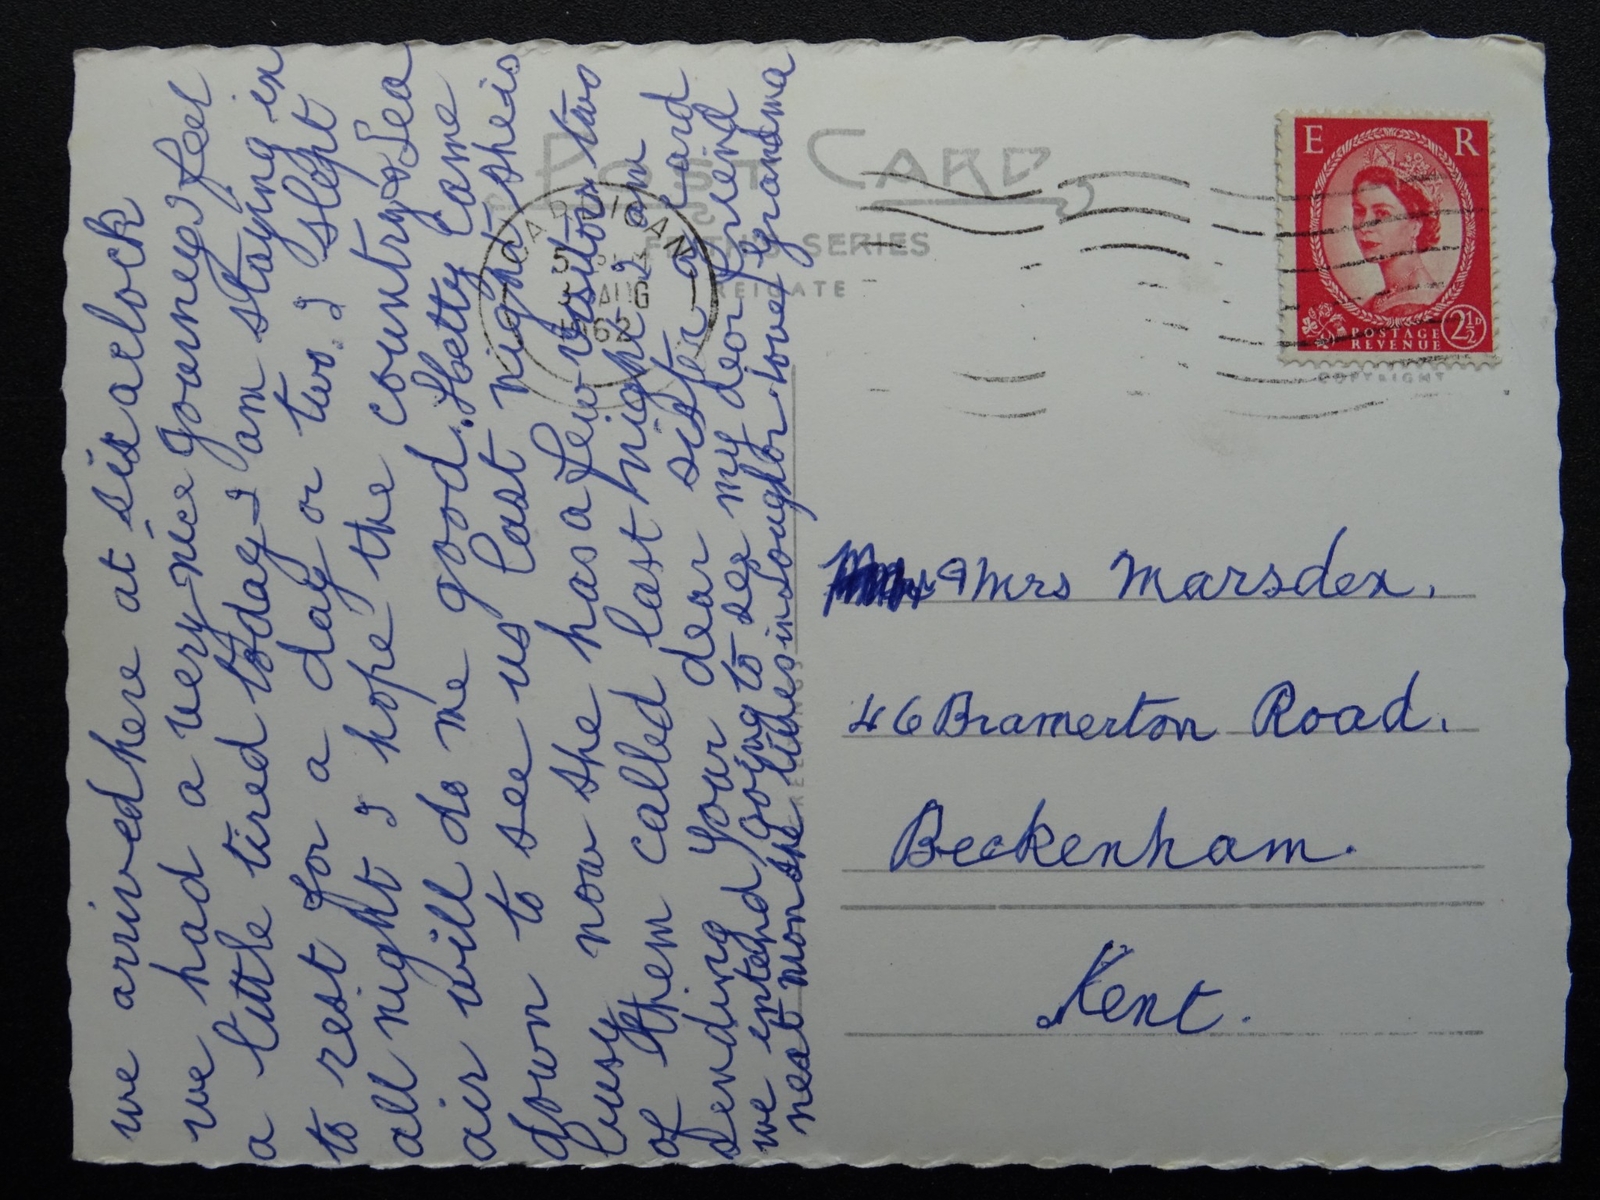 we arrived here at six oclock
we had a very nice journey I feel
a little tired today I am staying in
to rest for a day or two. I slept
all night I hope the country & Sea
air will do me good. Hetty came
down to see us last night she is
busy now she has a few visitors two
of them called last night I am
sending your dear sister a card
we intend going to see my dear freind
next mon she lives in Loughor. love grandma
POST CARD
FRITH'S SERIES
REIGATE
CARDIGAN
AUG
1962
E R
POSTAGE
REVENUE
2½D
COPYRIGHT
Mrs Marsden.
46 Bramerton Road.
Beckenham.
Kent.